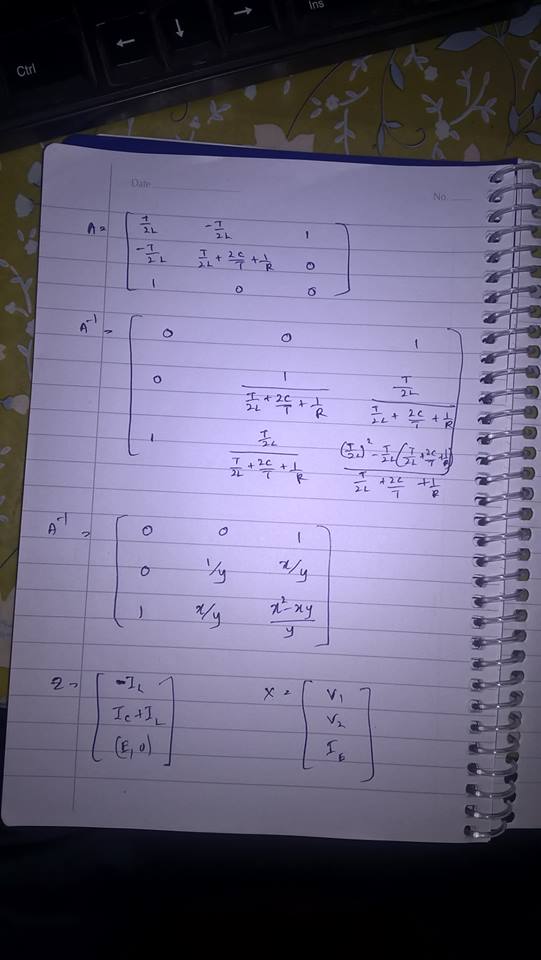 Ctrl
←
↓
→
Ins
Date
No.
A = [ T/2L  -T/2L  1
-T/2L  T/2L + 2C/T + 1/R  0
1  0  0 ]
A⁻¹ = [ 0  0  1
0  1/(T/2L + 2C/T + 1/R)  (T/2L)/(T/2L + 2C/T + 1/R)
1  (T/2L)/(T/2L + 2C/T + 1/R)  ((T/2L)² - T/2L(T/2L + 2C/T + 1/R))/(T/2L + 2C/T + 1/R) ]
A⁻¹ = [ 0  0  1
0  1/y  x/y
1  x/y  (x² - xy)/y ]
Z = [ -I_L
I_C + I_L
(E, 0) ]
X = [ V₁
V₂
I_E ]